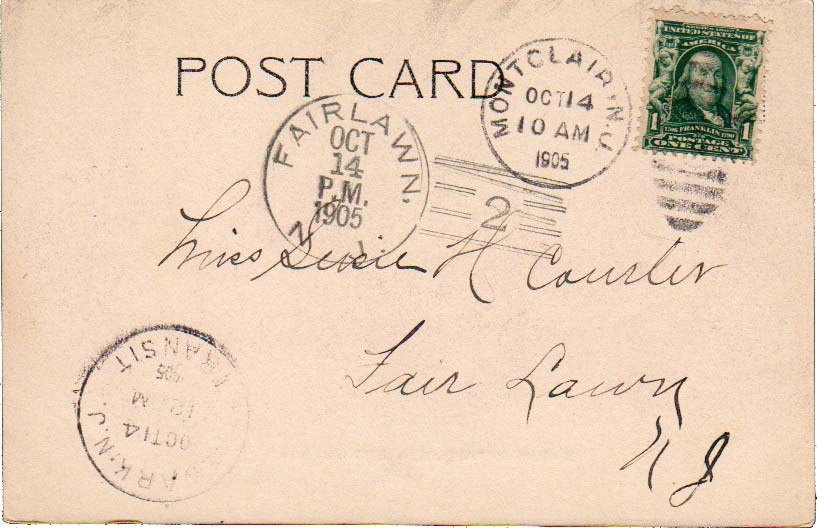 POST CARD
MONTCLAIR, N.J.
OCT 14
10 AM
1905
SERIES 1902
UNITED STATES OF
AMERICA
1 1706 FRANKLIN 1790 1
POSTAGE
ONE CENT
FAIRLAWN.
OCT
14
P.M.
1905
N. J.
2
Miss Susie H Courter
Fair Lawn
N J
TRANSIT
OCT 14